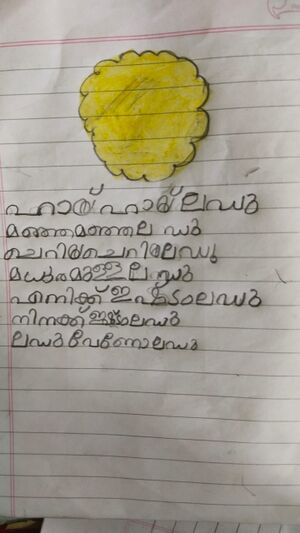 ഹായ് ഹായ് ലഡു
മഞ്ഞമഞ്ഞല ഡു
ചെറിയചെറിലഡു
മധുരമുള്ളല ഡു
എനിക്ക് ഇഷ്ടംലഡു
നിനക്ക്ഇഷ്ടംലഡു
ലഡുവേണോലഡു